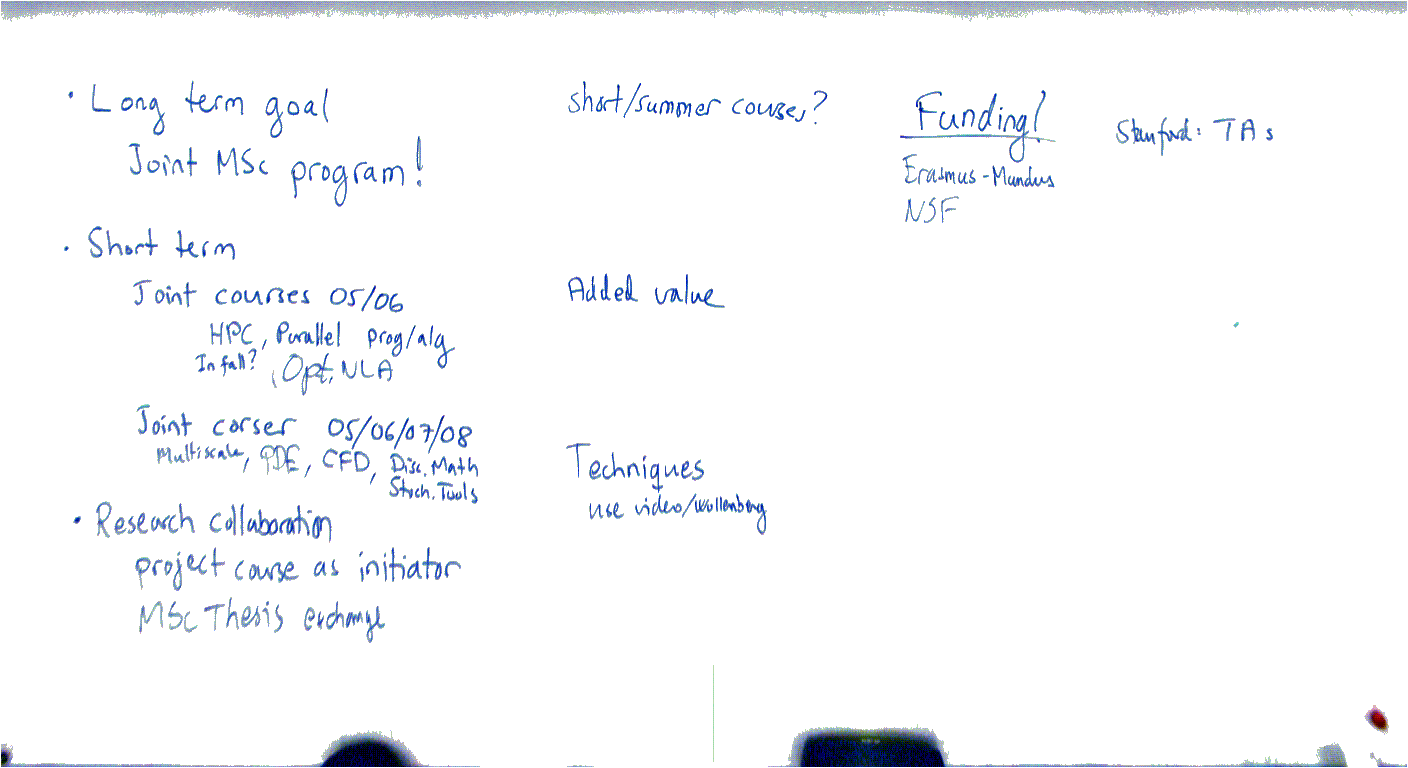 • Long term goal
Joint MSc program!
• Short term
Joint courses 05/06
HPC, Parallel prog/alg
In fall? , Opt, NLA
Joint corser 05/06/07/08
Multiscale, PDE, CFD, Disc. Math
Stoch. Tools
• Research collaboration
project course as initiator
MSc Thesis exchange
short/summer courses?
Added value
Techniques
use video/wallenberg
Funding?
Erasmus-Mundus
NSF
Stanford: TAs